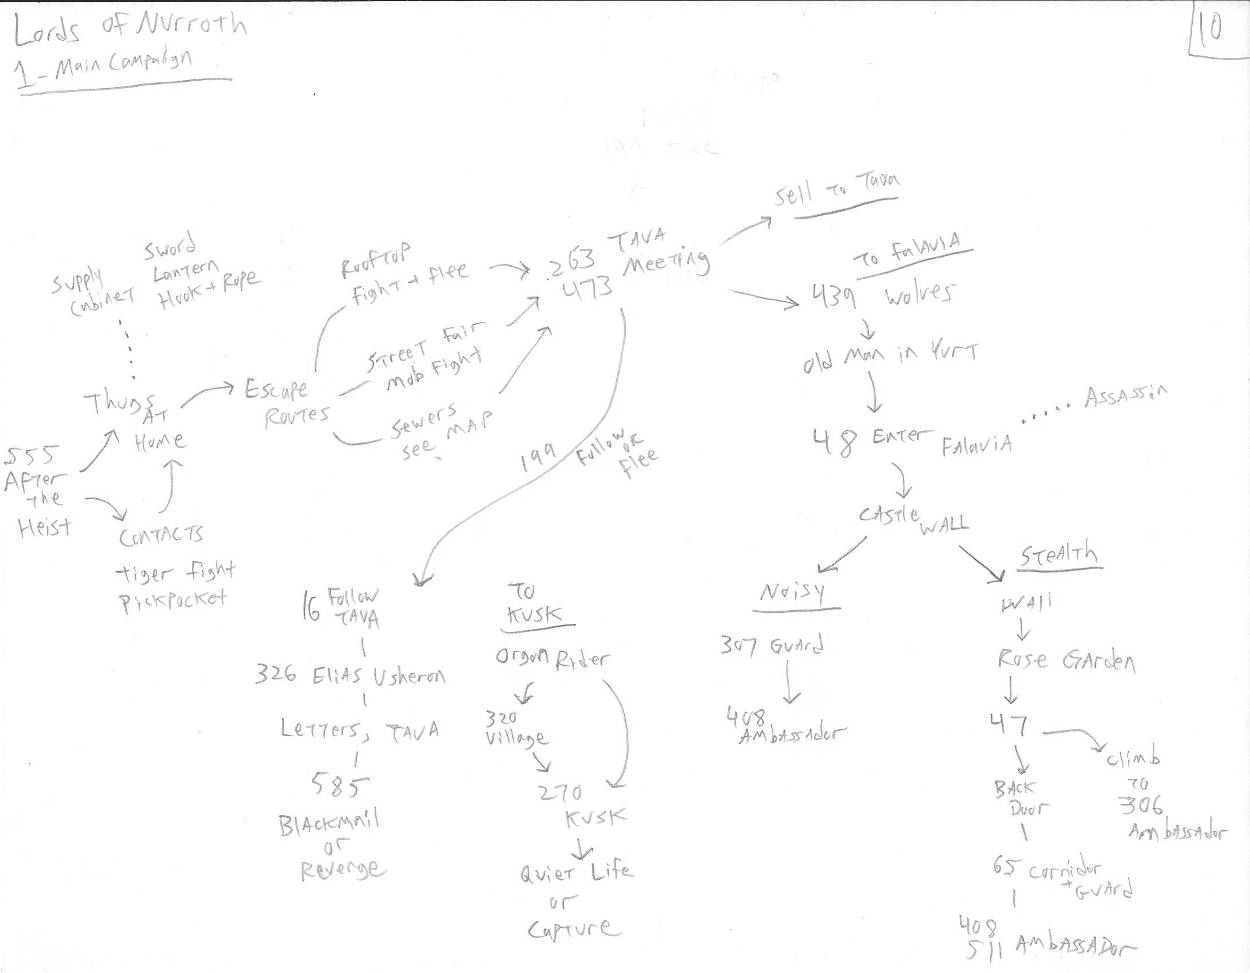 Lords of Nurroth
1 - Main Campaign
10
Supply
Cabinet
Sword
Lantern
Hook + Rope
Thugs
AT
Home
555
After
the
Heist
Contacts
tiger fight
pickpocket
Escape
Routes
Rooftop
fight + flee
Street Fair
Mob Fight
Sewers
see MAP
263
473
TAVA
Meeting
Sell to Tava
To Falavia
439 wolves
Old Man in Yurt
48 Enter
Falavia
Assassin
Castle
Wall
199
Follow or
Flee
16 Follow
TAVA
326 Elias Usheron
Letters, TAVA
585
Blackmail
or
Revenge
To
Kusk
Orgon Rider
320
Village
270
Kusk
Quiet Life
or
Capture
Noisy
307 Guard
408
Ambassador
Stealth
Wall
Rose Garden
47
Back
Door
65 Corridor
+ Guard
408
511 Ambassador
Climb
to
306
Ambassador